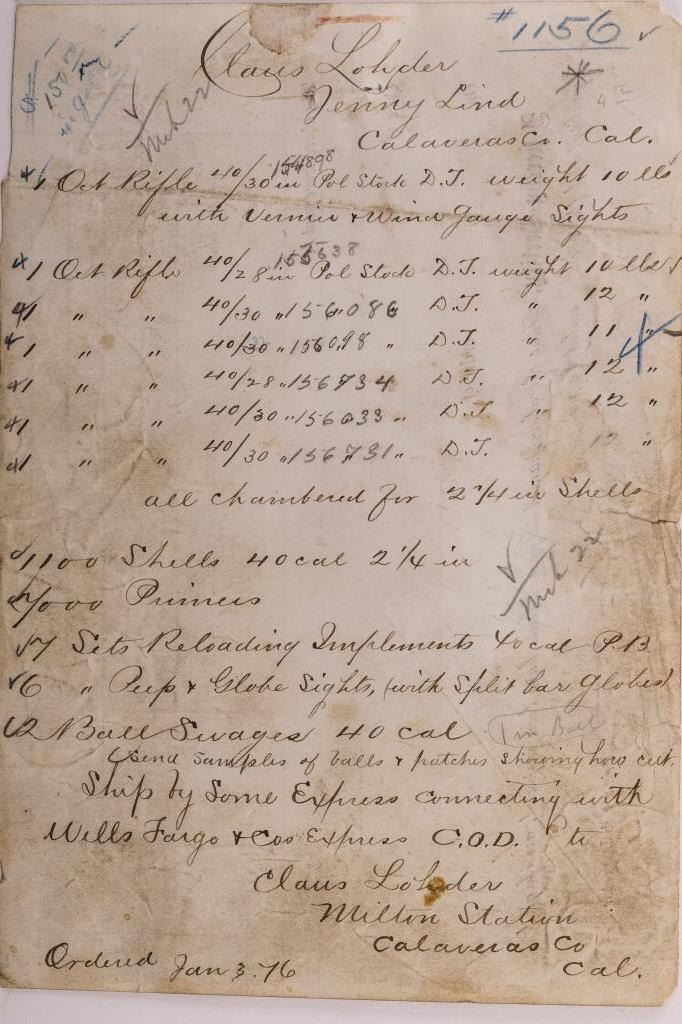 #1156
1500
in gold
Claus Lohder
Jenny Lind
Calaveras Co. Cal.
Mch 22
154898
1 Oct Rifle 40/30 in Pol Stock D.T. weight 10 lbs
with Vernier & Wind Gauge Sights
155638
1 Oct Rifle 40/28 in Pol Stock D.T. weight 10 lbs
1 " " 40/30 " 156086 D.T. " 12 "
1 " " 40/30 " 156098 " D.T. " 11 "
1 " " 40/28 " 156734 D.T. " 12 "
1 " " 40/30 " 156033 " D.T. " 12 "
1 " " 40/30 " 156731 " D.T. 12 "
all chambered for 2 1/4 in Shells
1100 Shells 40 cal 2 1/4 in
Mch 22
Primers
7 Sets Reloading Implements 40 cal P.B.
6 " Peep & Globe Sights, (with Split bar Globes)
2 Ball Swages 40 cal
(send samples of balls & patches showing how cut.
Ship by Some Express connecting with
Wells Fargo & Cos Express C.O.D. to
Claus Lohder
Milton Station
Calaveras Co
Cal.
Ordered Jan 3. 76